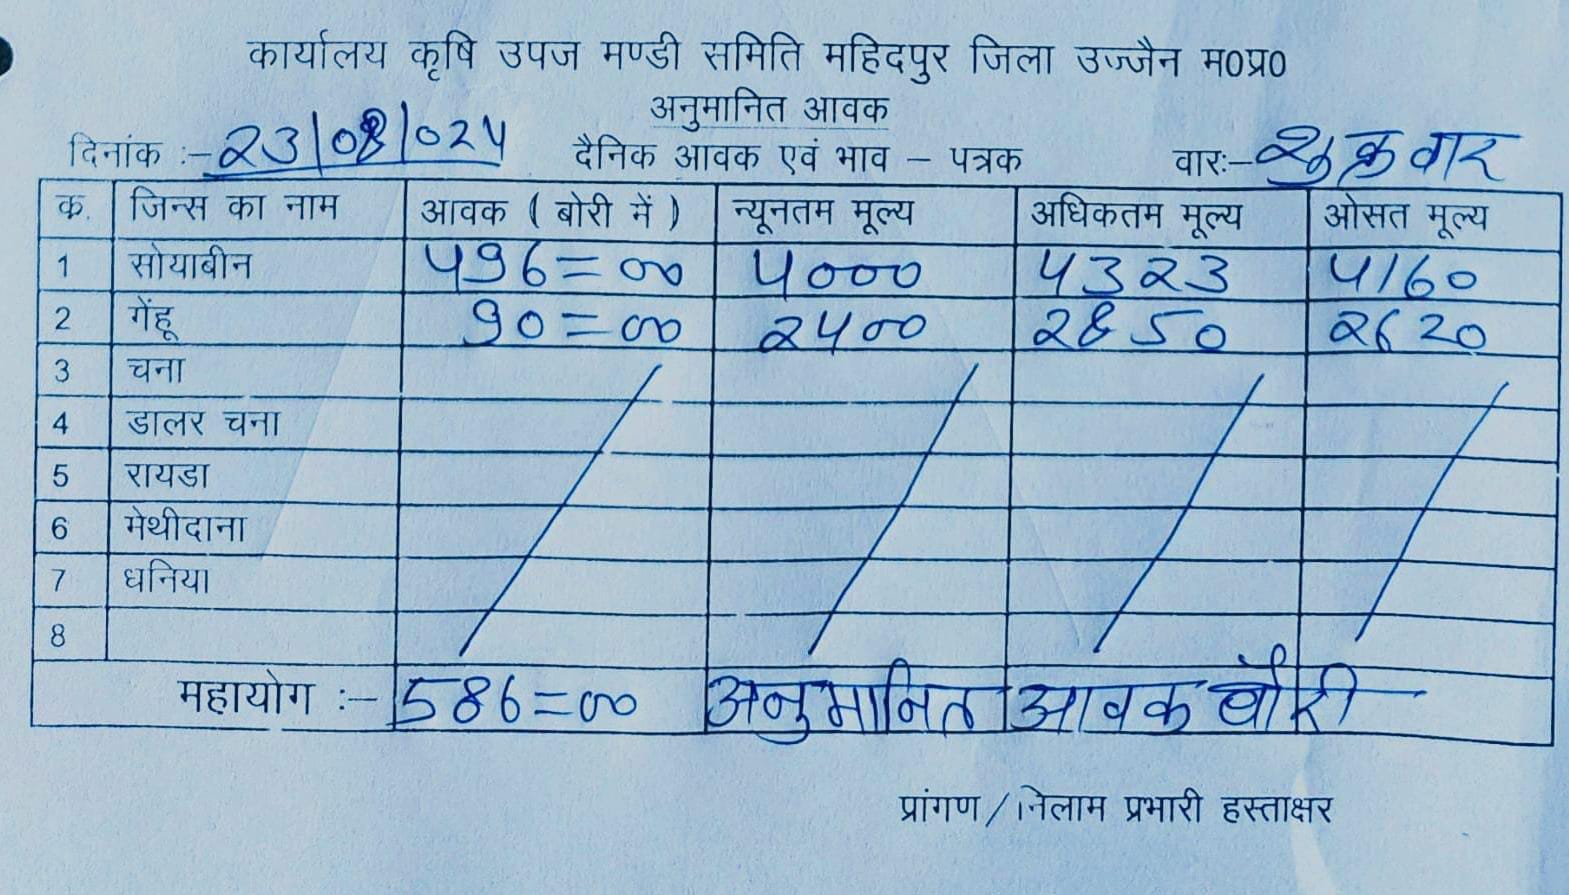 कार्यालय कृषि उपज मण्डी समिति महिदपुर जिला उज्जैन म०प्र०
अनुमानित आवक
दिनांक :- 23/08/024 दैनिक आवक एवं भाव – पत्रक वारः- शुक्रवार
क. जिन्स का नाम आवक ( बोरी में ) न्यूनतम मूल्य अधिकतम मूल्य ओसत मूल्य
1 सोयाबीन 496=00 4000 4323 4160
2 गेंहू 90=00 2400 2850 2620
3 चना
4 डालर चना
5 रायडा
6 मेथीदाना
7 धनिया
8
महायोग :- 586=00 अनुमानित आवक बोरी
प्रांगण / निलाम प्रभारी हस्ताक्षर